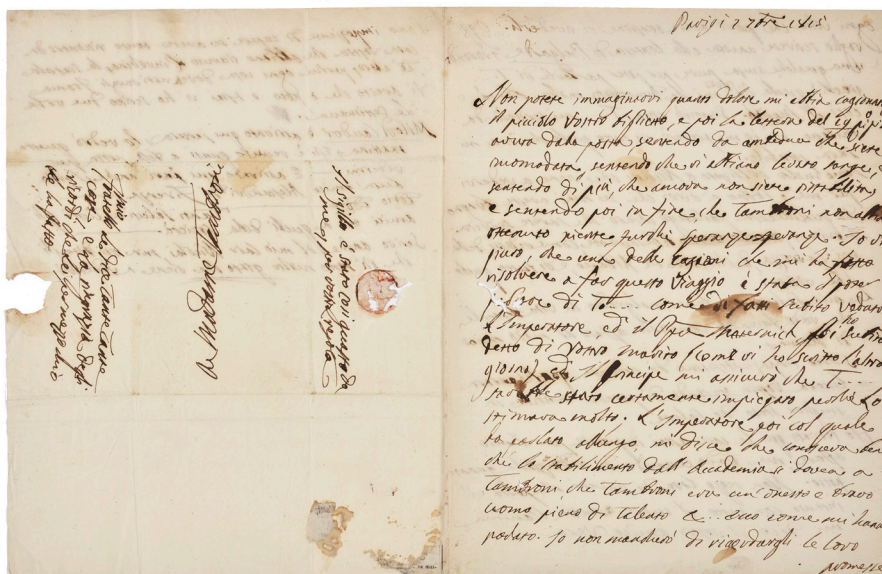 Parigi 2 7bre 1815
Non potete immaginarvi quanto dolore mi abbia cagionato
il picciolo vostro biglietto, e poi la lettera del 19 pº pº
avuta dalla posta sentendo da amedue che siete
incomodata, sentendo che vi abbiano levato sangue, e
sentendo di più, che ancora non siete ristabilita,
e sentendo poi in fine, che Tambroni non abbia
ottenuto niente, fuorchè speranze speranze. Io vi
giuro, che una delle cagioni che mi ha fatto
risolvere a far questo Viaggio è stata di poter
di T.... come di fatti subito veduto
l'Imperatore ed il Metternich
detto di Vostro marito (come vi ho scritto l'altro
giorno). Il principe mi assicurò che T....
sarebbe stato certamente impiegato perchè lo
stimava molto. L'Imperatore poi col quale
ho parlato a lungo, mi disse che conosceva
che lo stabilimento dall'Accademia si dovea a
Tambroni che Tambroni era un onesto e bravo
uomo pieno di talento &... ecco come mi hanno
parlato. Io non mancherò di ricordargli le loro
promesse
Il sigillo è stato così guasto da
me, per vostra regola
Tante Tante
cose e la ringrazia degli